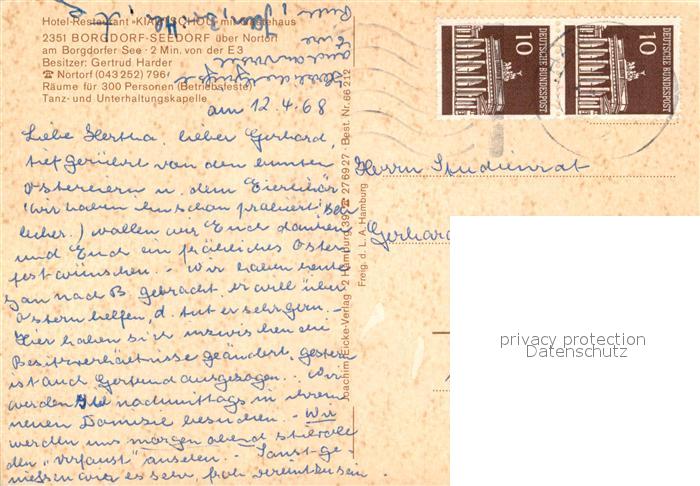 Hotel-Restaurant »KIARTSCHOL« mit Gästehaus
2351 BORGDORF-SEEDORF über Nortorf
am Borgdorfer See · 2 Min. von der E 3
Besitzer: Gertrud Harder
☎ Nortorf (043 252) 796
Räume für 300 Personen (Betriebsfeste)
Tanz- und Unterhaltungskapelle
am 12.4.68
Liebe Hertha, lieber Gerhard,
tief gerührt von den bunten
Ostereiern u. dem Eierlikör
(wir haben ihn schon probiert!
) wollen wir Euch danken
und Euch ein fröhliches Oster-
fest wünschen. - Wir haben heute
Jan nach B. gebracht er will über
Ostern helfen, d. tut er sehr gern. -
Hier haben sich inzwischen die
Besitzverhältnisse geändert, gestern
ist auch Gertrud ausgezogen. Wir
werden sie nachmittags in ihrem
neuen Domizil besuchen. - Wir
werden uns morgen abend
den "Urfaust" ansehen. - Sonst ge-
niessen wir es sehr, froh vereint zu sein.
Joachim Eicke-Verlag · 2 Hamburg 39 ☎ 27 69 27 · Best. Nr. 66 212
Freig. d. L. A. Hamburg
10 DEUTSCHE BUNDESPOST
10 DEUTSCHE BUNDESPOST
Herrn Studienrat
Gerhard
privacy protection
Datenschutz